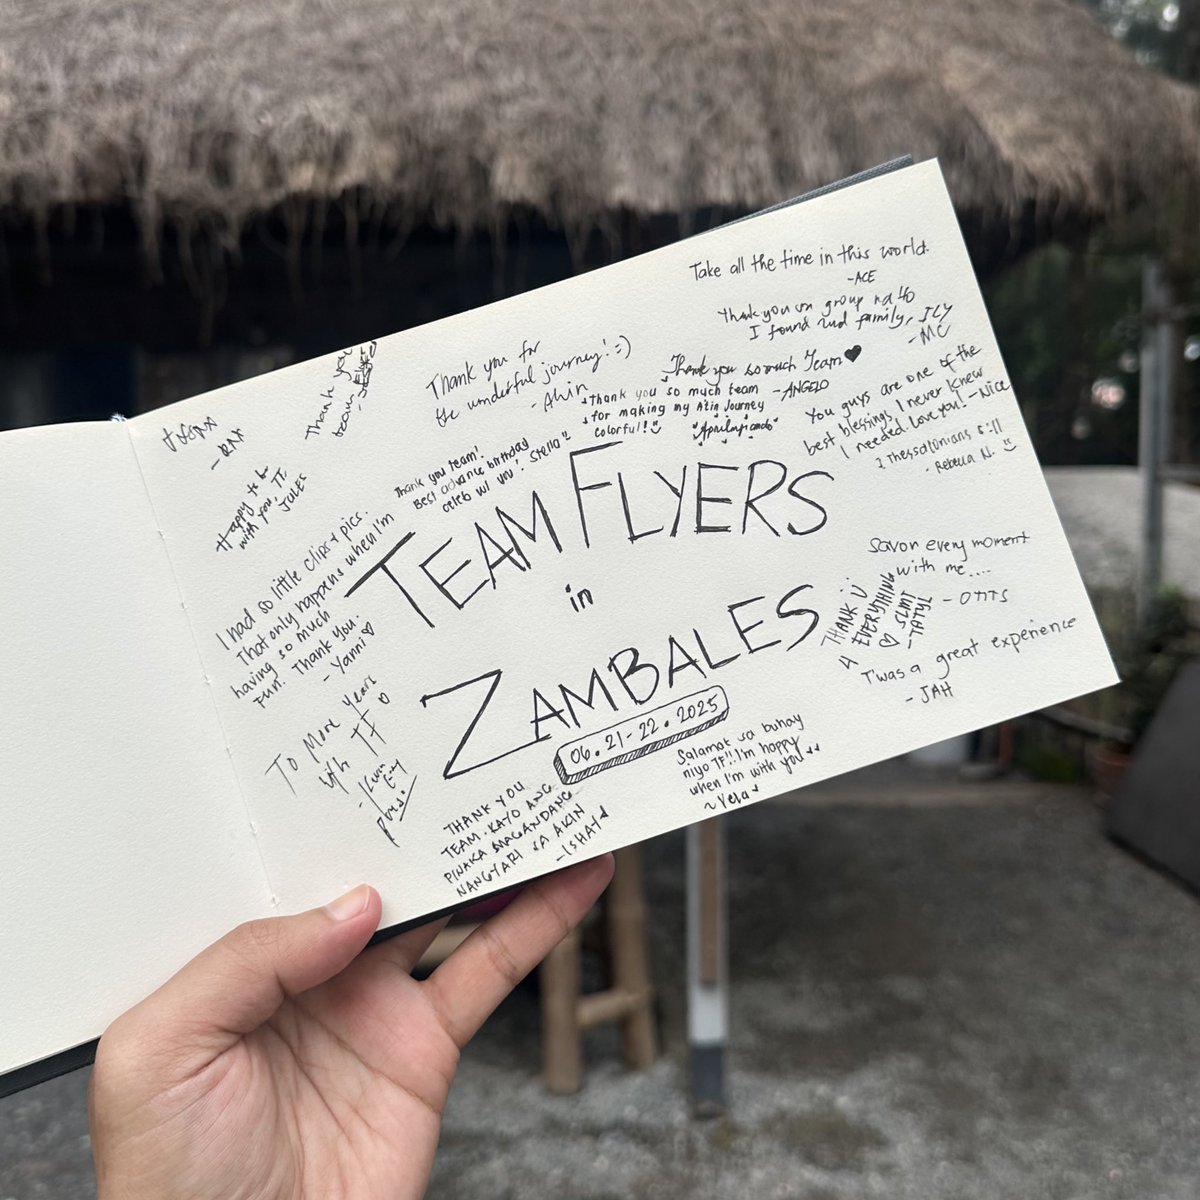 Take all the time in this world.
-ACE
Thank you on group na to
I found 2nd family, ILY
-MC
Thank you so much Team♥
-ANGELO
You guys are one of the
best blessings I never knew
I needed. Love you! -Nice
1 Thessalonians 5:11
- Rebecca N.
Thank you for
the wonderful journey! :)
- Ahin
thank you so much team
for making my A'tin Journey
colorful!
Thank you
team
- RAX
Happy to be
with you, TF
JULES
Thank you team!
Best advance birthday
celeb w/ you! Stella
TEAM FLYERS
in
ZAMBALES
06.21-22.2025
I had so little clips & pics.
That only happens when I'm
having so much
fun. Thank you.
- Yanni♡
To More years
with TF ♡
Savor every moment
with me....
- OTITS
THANK U
4 EVERYTHING
♡ SLMT
-TATYL
T'was a great experience
- JAH
Salamat sa buhay
niyo TF!! I'm happy
when I'm with you
~Yela
THANK YOU
TEAM. KAYO ANG
PINAKA MAGANDANG
NANGYARI SA AKIN
-ISHAY